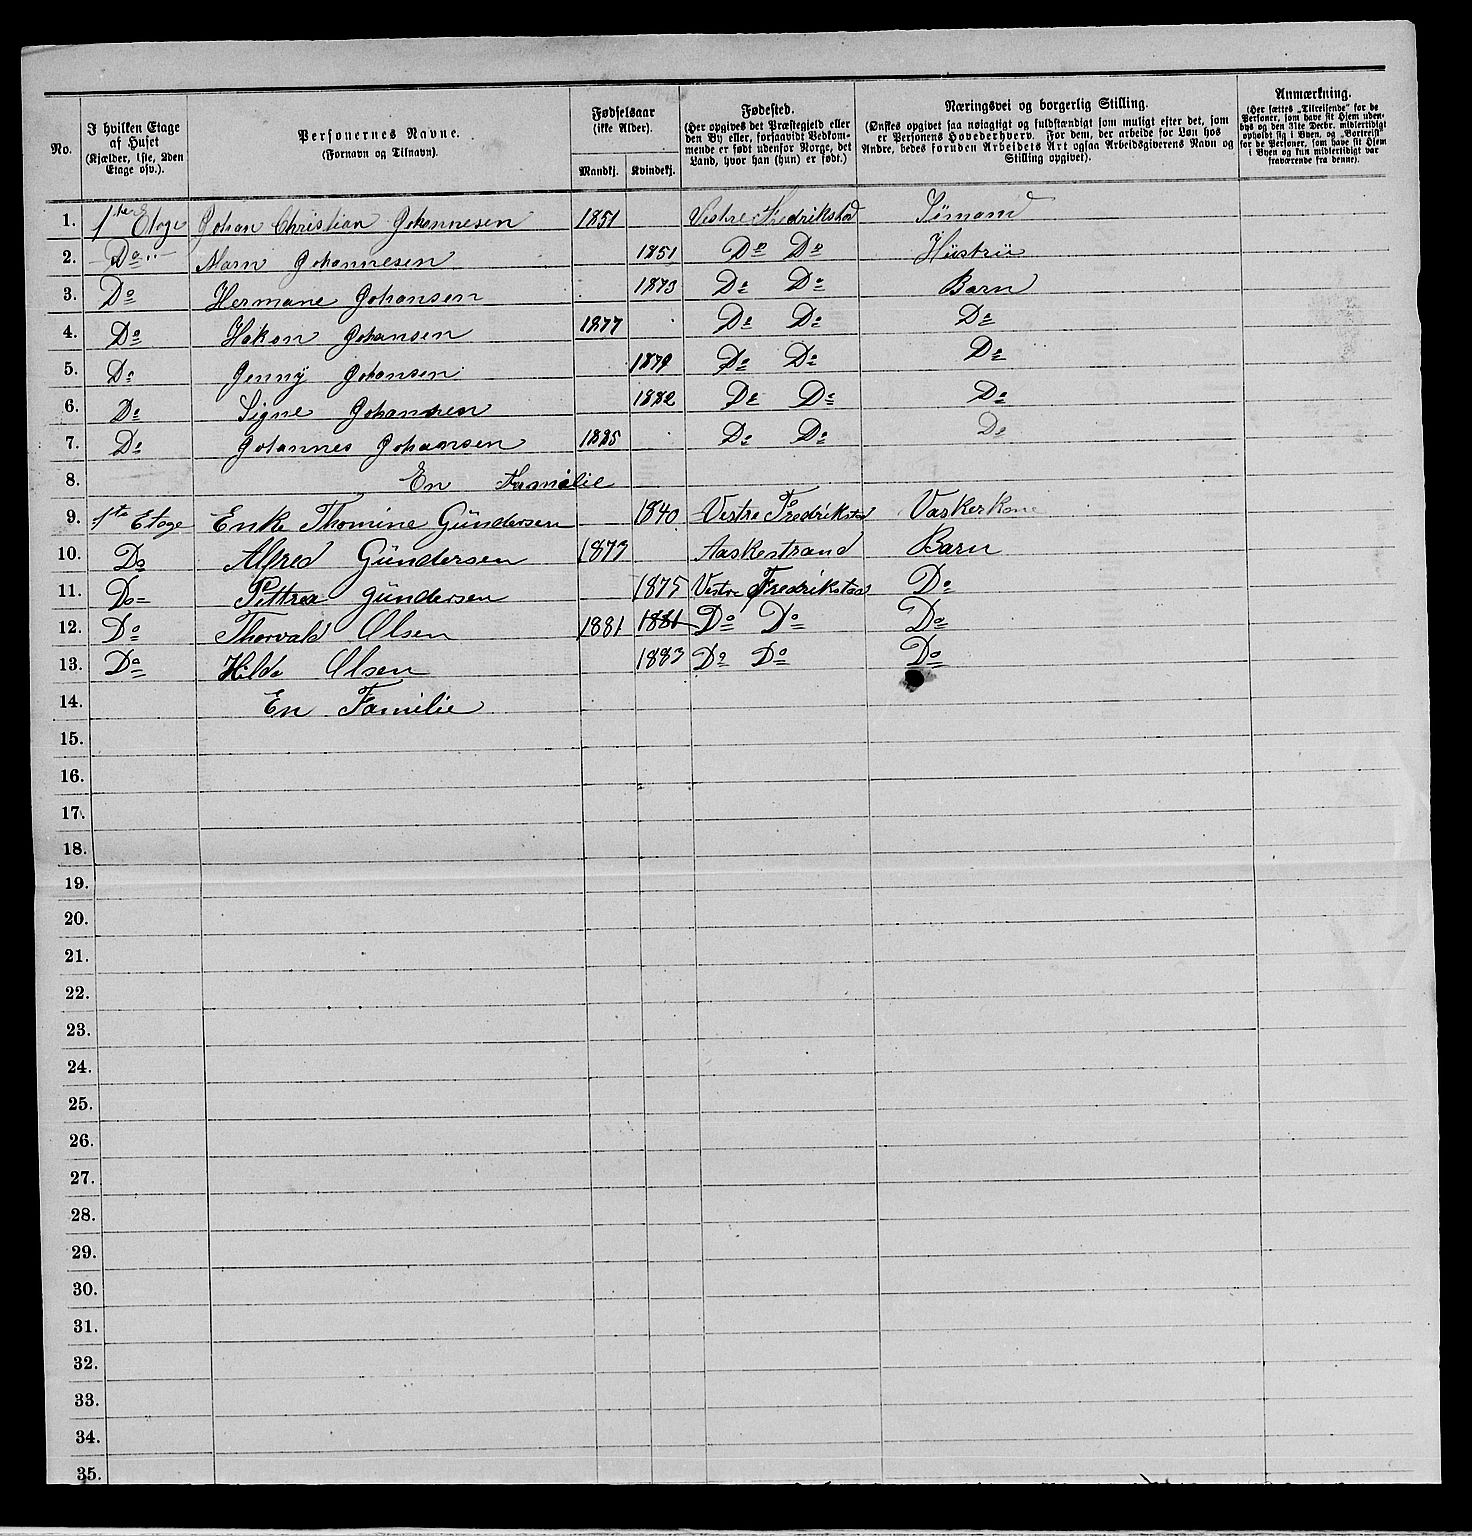 No.
I hvilken Etage af Huset
(Kjælder, 1ste, 2den Etage osv.).
Personernes Navne.
(Fornavn og Tilnavn).
Fødselsaar
(ikke Alder).
Mandkj. Kvindekj.
Fødested.
(Her opgives det Præstegjeld eller
den By eller, forsaavidt Vedkom-
mende er født udenfor Norge, det
Land, hvor han (hun) er født.)
Næringsvei og borgerlig Stilling.
(Ønskes opgivet saa nøiagtigt og fuldstændigt som muligt efter det, som
er Personens Hovederhverv. For dem, der arbeide for Løn hos
Andre, bedes foruden Arbeidets Art ogsaa Arbeidsgiverens Navn og
Stilling opgivet).
Anmærkning.
(Her sættes „Tilreisende" for de
Personer, som have sit Hjem uden-
bys og den 31te Decbr. midlertidigt
opholdt sig i Byen, og „Bortreist"
for de Personer, som have sit Hjem
i Byen og kun midlertidigt var
fraværende fra denne).
1. 1ste Etage Johan Christian Johannesen 1851 Vestre Fredrikstad Sømand
2. Do Maren Johannesen 1851 Do Do Hüstrü
3. Do Hermane Johansen 1873 Do Do Barn
4. Do Hakon Johansen 1877 Do Do Do
5. Do Jenny Johansen 1879 Do Do Do
6. Do Signe Johansen 1882 Do Do Do
7. Do Johannes Johansen 1885 Do Do Do
8. En Familie
9. 1ste Etage Enke Thomine Gündersen 1840 Vestre Fredrikstad Vaskerkone
10. Do Alfred Gündersen 1873 Aaskestrand Barn
11. Do Pettrea Gündersen 1875 Vestre Fredrikstad Do
12. Do Thorvald Olsen 1881 1881 Do Do Do
13. Do Hilda Olsen 1883 Do Do Do
14. En Familie
15.
16.
17.
18.
19.
20.
21.
22.
23.
24.
25.
26.
27.
28.
29.
30.
31.
32.
33.
34.
35.